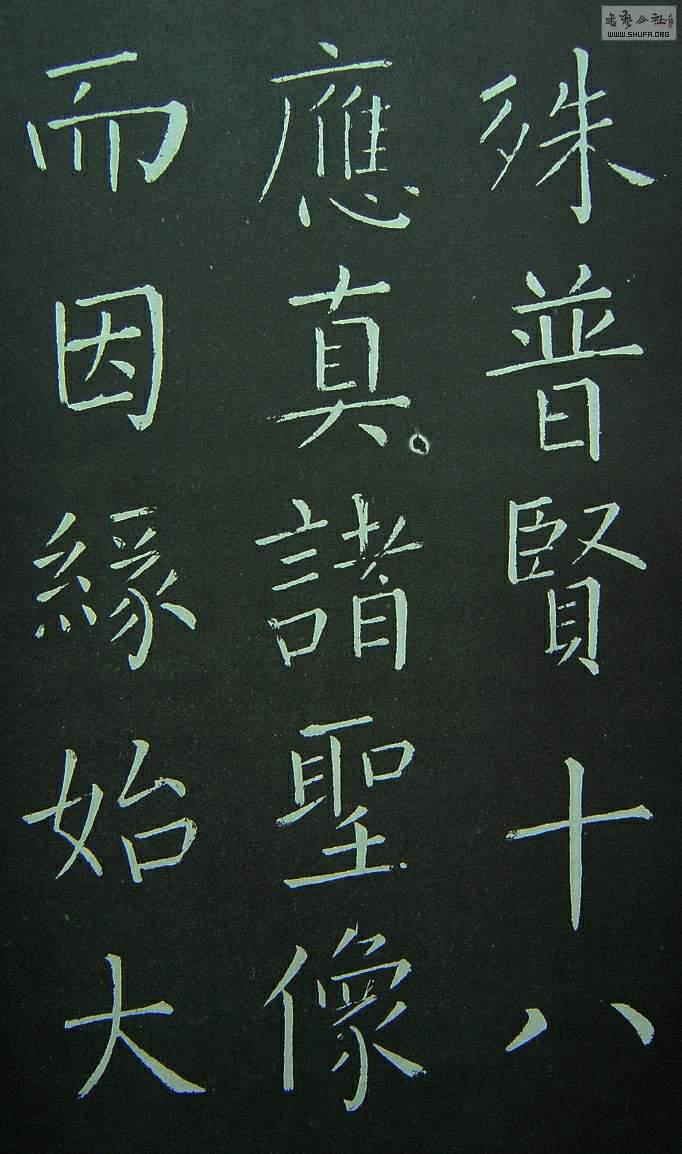 殊普賢十八
應真。諸聖像
而因緣始大
WWW.SHUFA.ORG